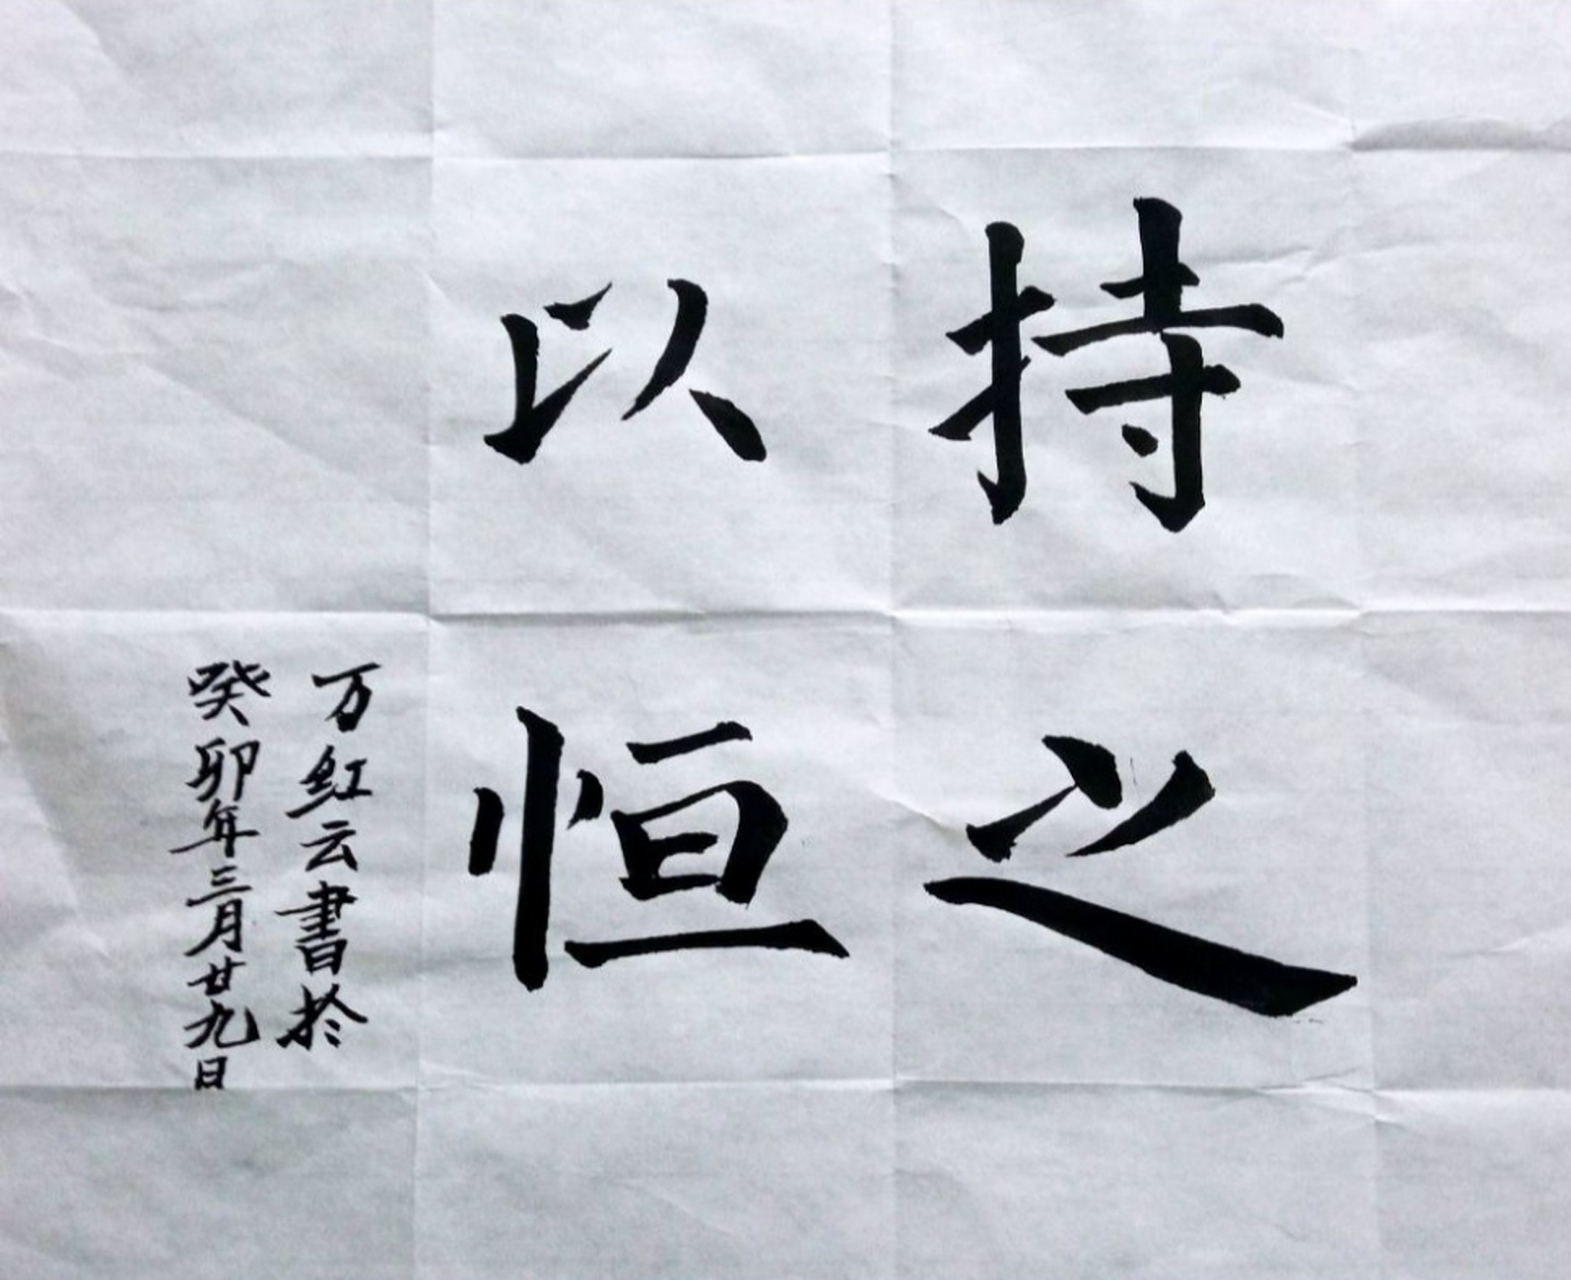 持之
以恒
万红云書於
癸卯年三月廿九日